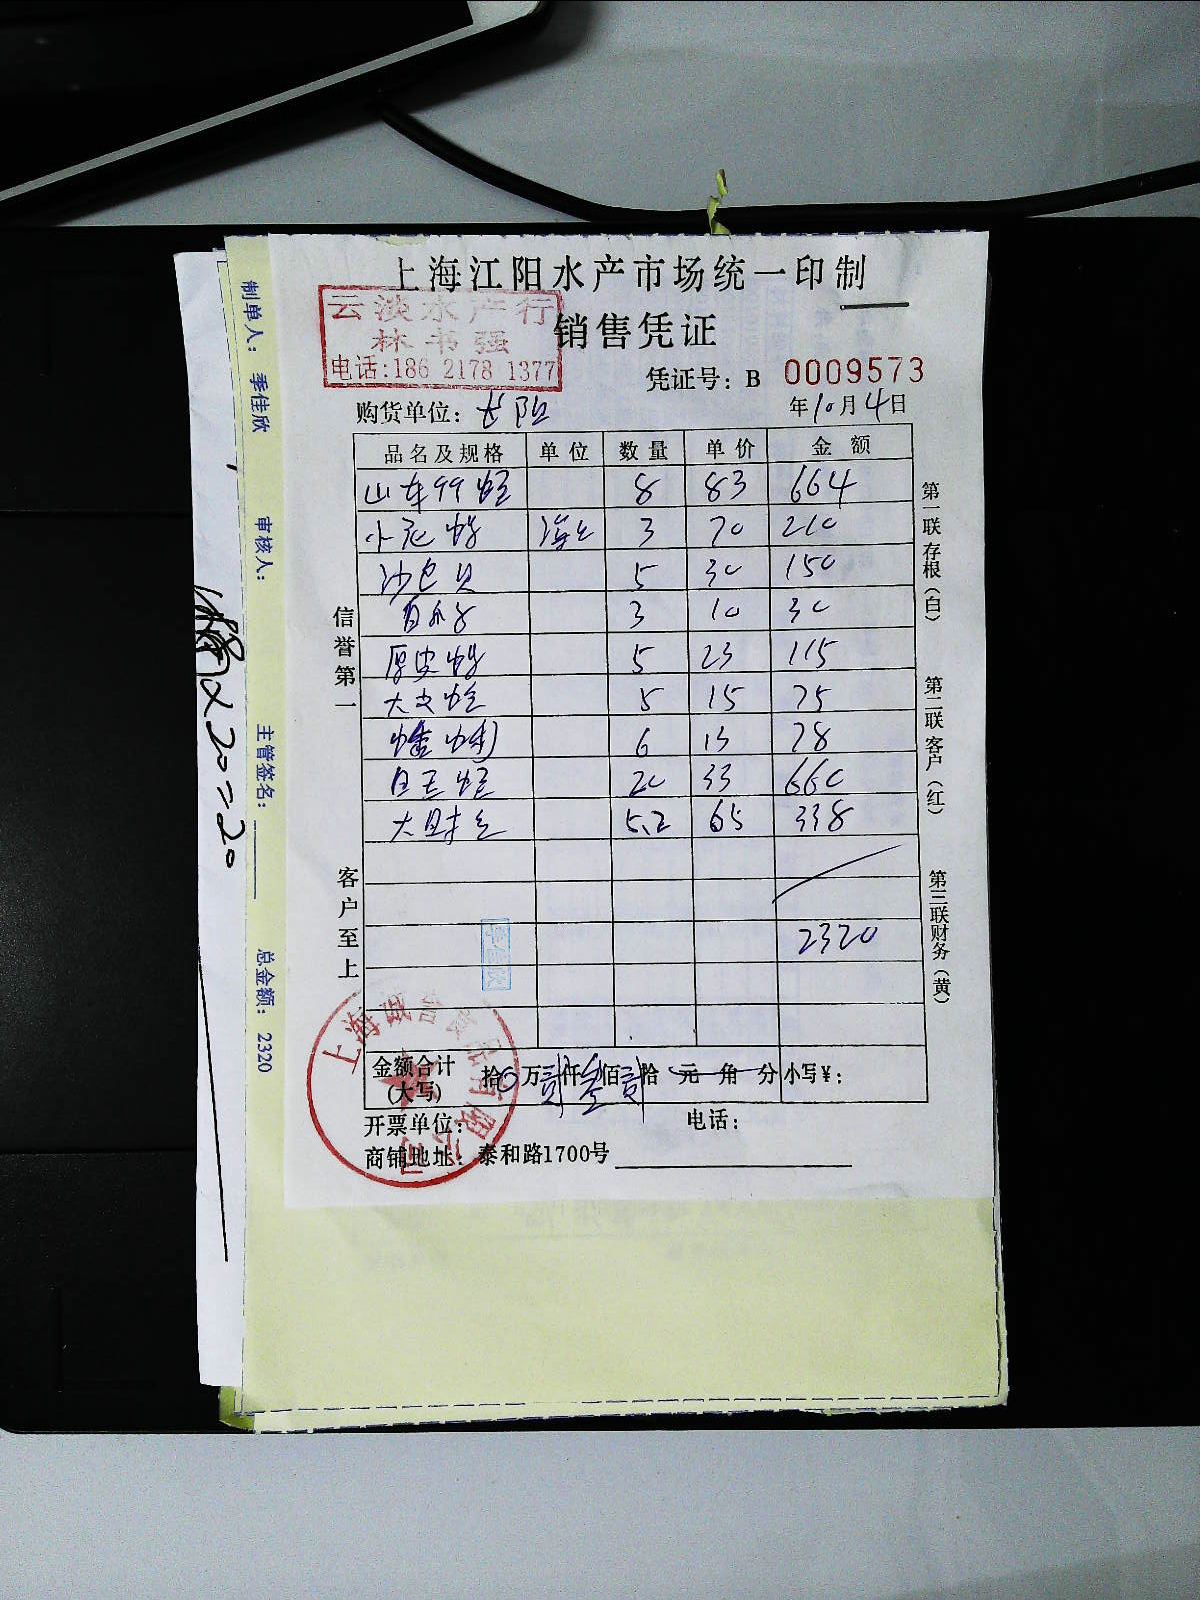 上海江阳水产市场统一印制
云淡水产行
林书强
电话:186 2178 1377
销售凭证
凭证号: B 0009573
购货单位: 长阳
年10月4日
品名及规格 单位 数量 单价 金额
山车99蛏 8 83 664
小花蛤 3 70 210
沙白贝 5 30 150
3 10 30
厚皮蛤 5 23 115
大皮蛏 5 15 75
6 13 78
20 33 660
大 5.2 65 338
2320
金额合计(大写) 拾0万贰仟叁佰贰拾 元 角 分 小写¥:
开票单位: 电话:
商铺地址: 泰和路1700号
信誉第一
客户至上
第一联 存根(白)
第二联 客户(红)
第三联 财务(黄)
制单人: 季佳欣 审核人: 主管签名: 总金额: 2320